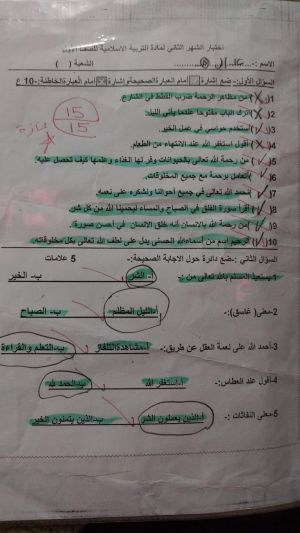 اختبار الشهر الثاني لمادة التربية الاسلامية للصف الاول
الاسم :- الشعبة ( )
السؤال الأول:- ضع إشارة ☑ أمام العبارة الصحيحة وإشارة ☒ امام العبارة الخاطئة:- 10 ع
1(X) من مظاهر الرحمة ضرب القطط في الشارع.
2(X) أترك الباب مفتوحا عندما يأتي الليل.
3(√) أستخدم حواسي في عمل الخير.
4(X) أقول استغفر الله عند الانتهاء من الطعام.
5(√) من رحمة الله تعالى بالحيوانات وفر لها الغذاء وعلمها كيف تحصل عليه.
6(√) أتعامل برحمة مع جميع المخلوقات.
7(√) أحمد الله تعالى في جميع أحوالنا ونشكره على نعمه.
8(√) أقرأ سورة الفلق في الصباح والمساء ليحمينا الله من كل شر.
9(√) من رحمة الله بالانسان أنه خلق الانسان في أحسن صورة.
10(√) الرحيم اسم من أسماء الله الحسنى يدل على لطف الله تعالى بكل مخلوقاته.
15
15
السؤال الثاني :-ضع دائرة حول الاجابة الصحيحة:- 5 علامات
1-يستعيذ المسلم بالله تعالى من :-
أ- الشر ب- الخير
2-معنى( غاسق):-
أ-الليل المظلم ب- الصباح
3-أحمد الله على نعمة العقل عن طريق:-
أ-مشاهدة التلفاز ب-التعلم والقراءة
4-أقول عند العطاس:-
أ-استغفر الله ب-الحمد لله
5-معنى النفاثات :-
أ-الذين يعملون الشر ب-الذين يتمنون الخير